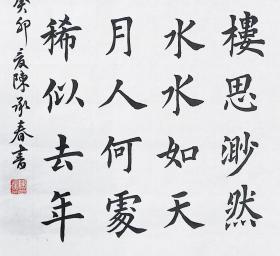 樓思渺然
水水如天
月人何處
稀似去年
癸卯夏陳承春書